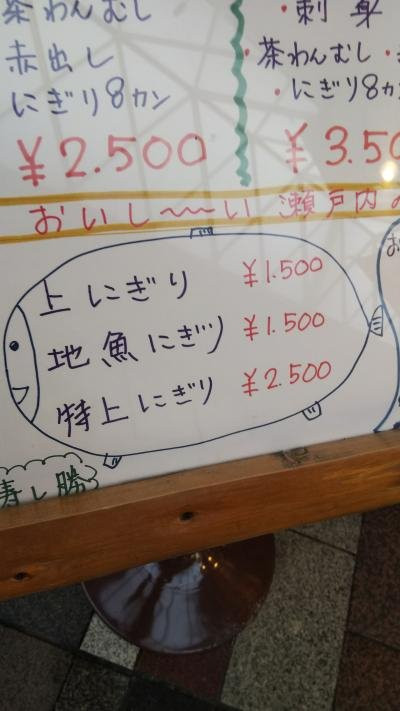 茶わんむし
赤出し
にぎり8カン
¥2.500
・刺身
・茶わんむし・
・にぎり8カ
¥3.50
おいし〜〜い 瀬戸内
上にぎり ¥1.500
地魚にぎり ¥1.500
特上にぎり ¥2.500
寿し勝